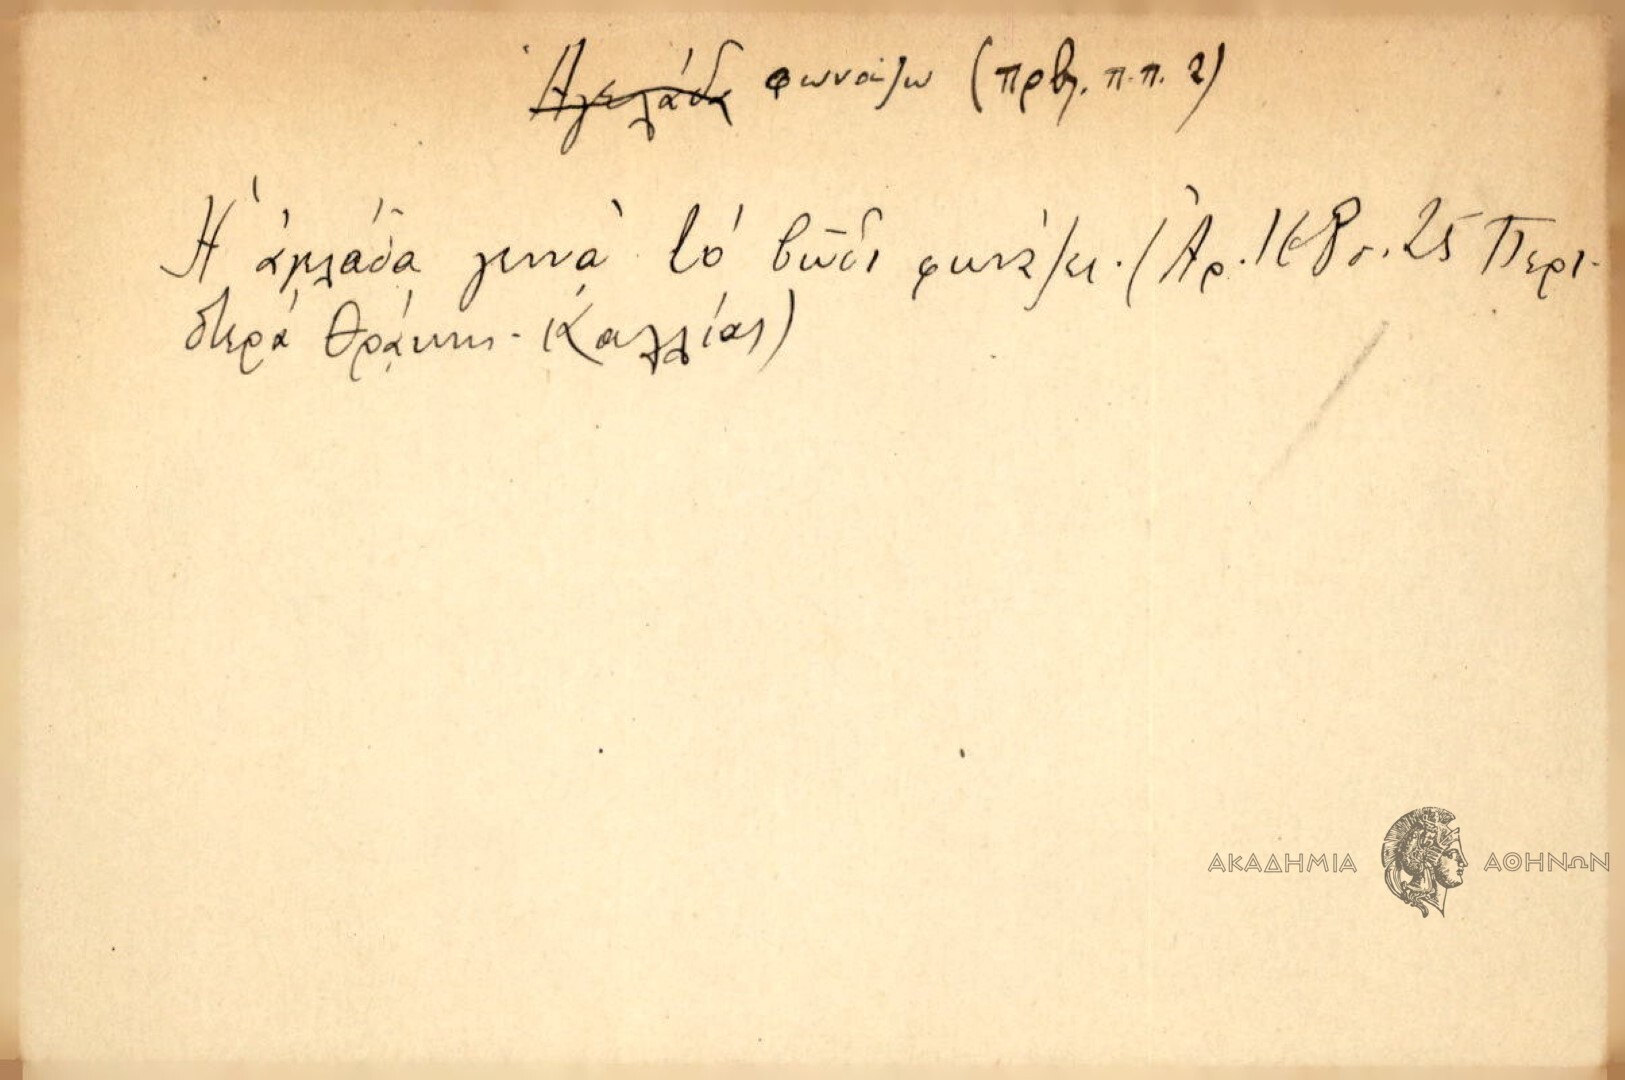 Ἀγελάδα φωνάζω (πρβλ. π.π. 2)
Ἡ ἀγελάδα γεννᾶ τό βῶδι φωνάζει. (Ἀρ. 168 σ. 25 Περι-
στερά Θράκης - Καλλίας)
ΑΚΑΔΗΜΙΑ ΑΘΗΝΩΝ